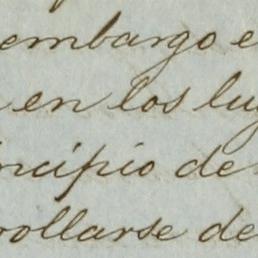 embargo e
en los lug
ncipio de
rollarse de